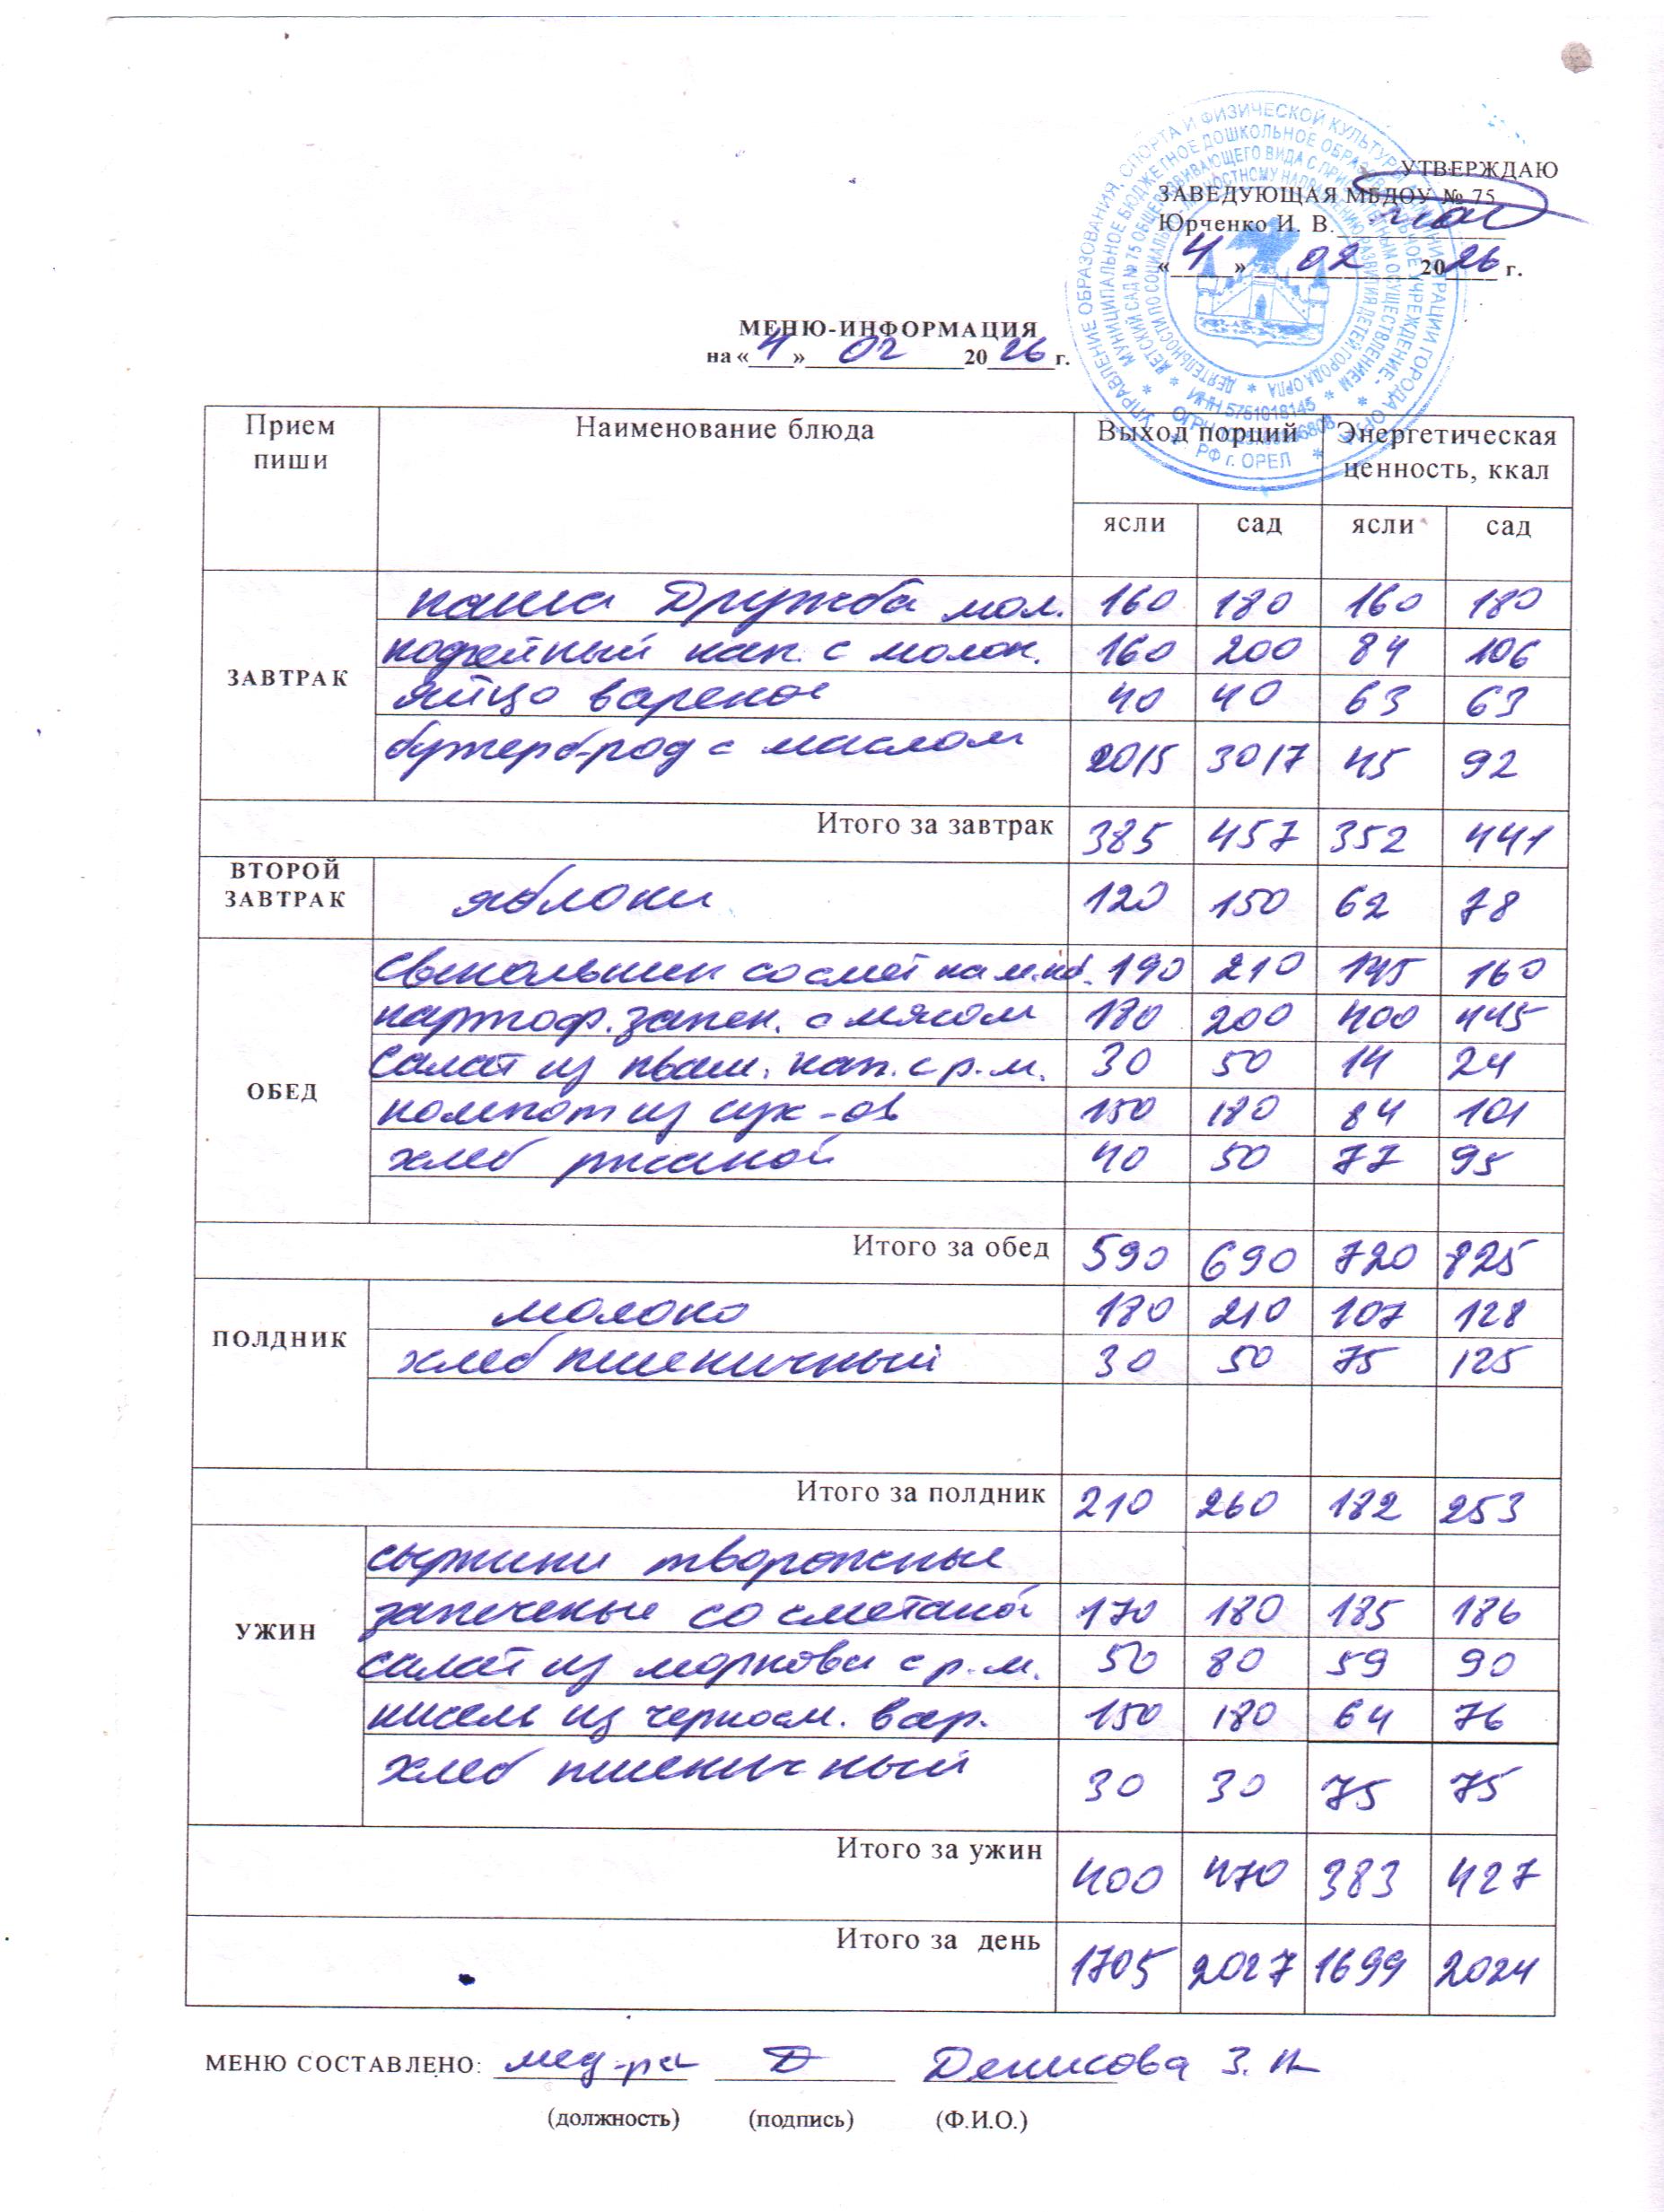 УТВЕРЖДАЮ
ЗАВЕДУЮЩАЯ МБДОУ № 75
Юрченко И. В.
« 4 » 02 2026 г.
МЕНЮ-ИНФОРМАЦИЯ
на « 4 » 02 2026 г.
Прием пиши Наименование блюда Выход порций Энергетическая ценность, ккал
ясли сад ясли сад
ЗАВТРАК
каша Дружба мол. 160 180 160 180
кофейный нап. с молок. 160 200 84 106
яйцо вареное 40 40 63 63
бутерброд с маслом 20/5 30/7 45 92
Итого за завтрак 385 457 352 441
ВТОРОЙ ЗАВТРАК яблоки 120 150 62 78
ОБЕД
свекольник со смет на м.кб. 190 210 145 160
картоф. запек. с мясом 180 200 400 445
Салат из кваш. кап. с р.м. 30 50 14 24
компот из сух-ов 150 180 84 101
хлеб ржаной 40 50 77 95
Итого за обед 590 690 720 825
ПОЛДНИК
молоко 180 210 107 128
хлеб пшеничный 30 50 75 125
Итого за полдник 210 260 182 253
УЖИН
сырники творожные
запеченые со сметаной 170 180 185 186
салат из моркови с р.м. 50 80 59 90
кисель из черносм. вар. 150 180 64 76
хлеб пшеничный 30 30 75 75
Итого за ужин 400 470 383 427
Итого за день 1705 2027 1699 2024
МЕНЮ СОСТАВЛЕНО: мед-ра Денисова З. Н
(должность) (подпись) (Ф.И.О.)
УПРАВЛЕНИЕ ОБРАЗОВАНИЯ, СПОРТА И ФИЗИЧЕСКОЙ КУЛЬТУРЫ АДМИНИСТРАЦИИ ГОРОДА ОРЛА
ИНН 5751018145
РФ г. ОРЕЛ